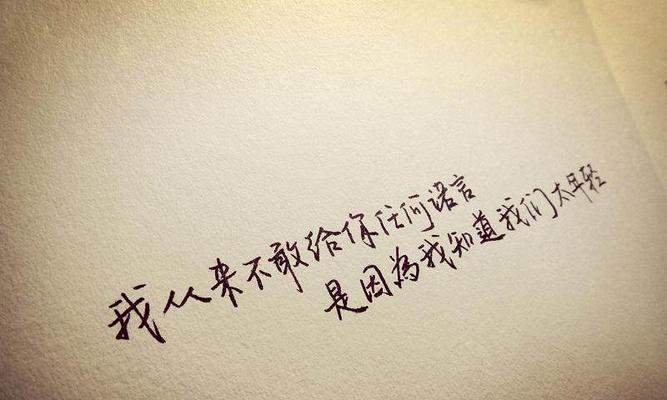 我从来不敢给你任何诺言
是因為我知道我们太年轻